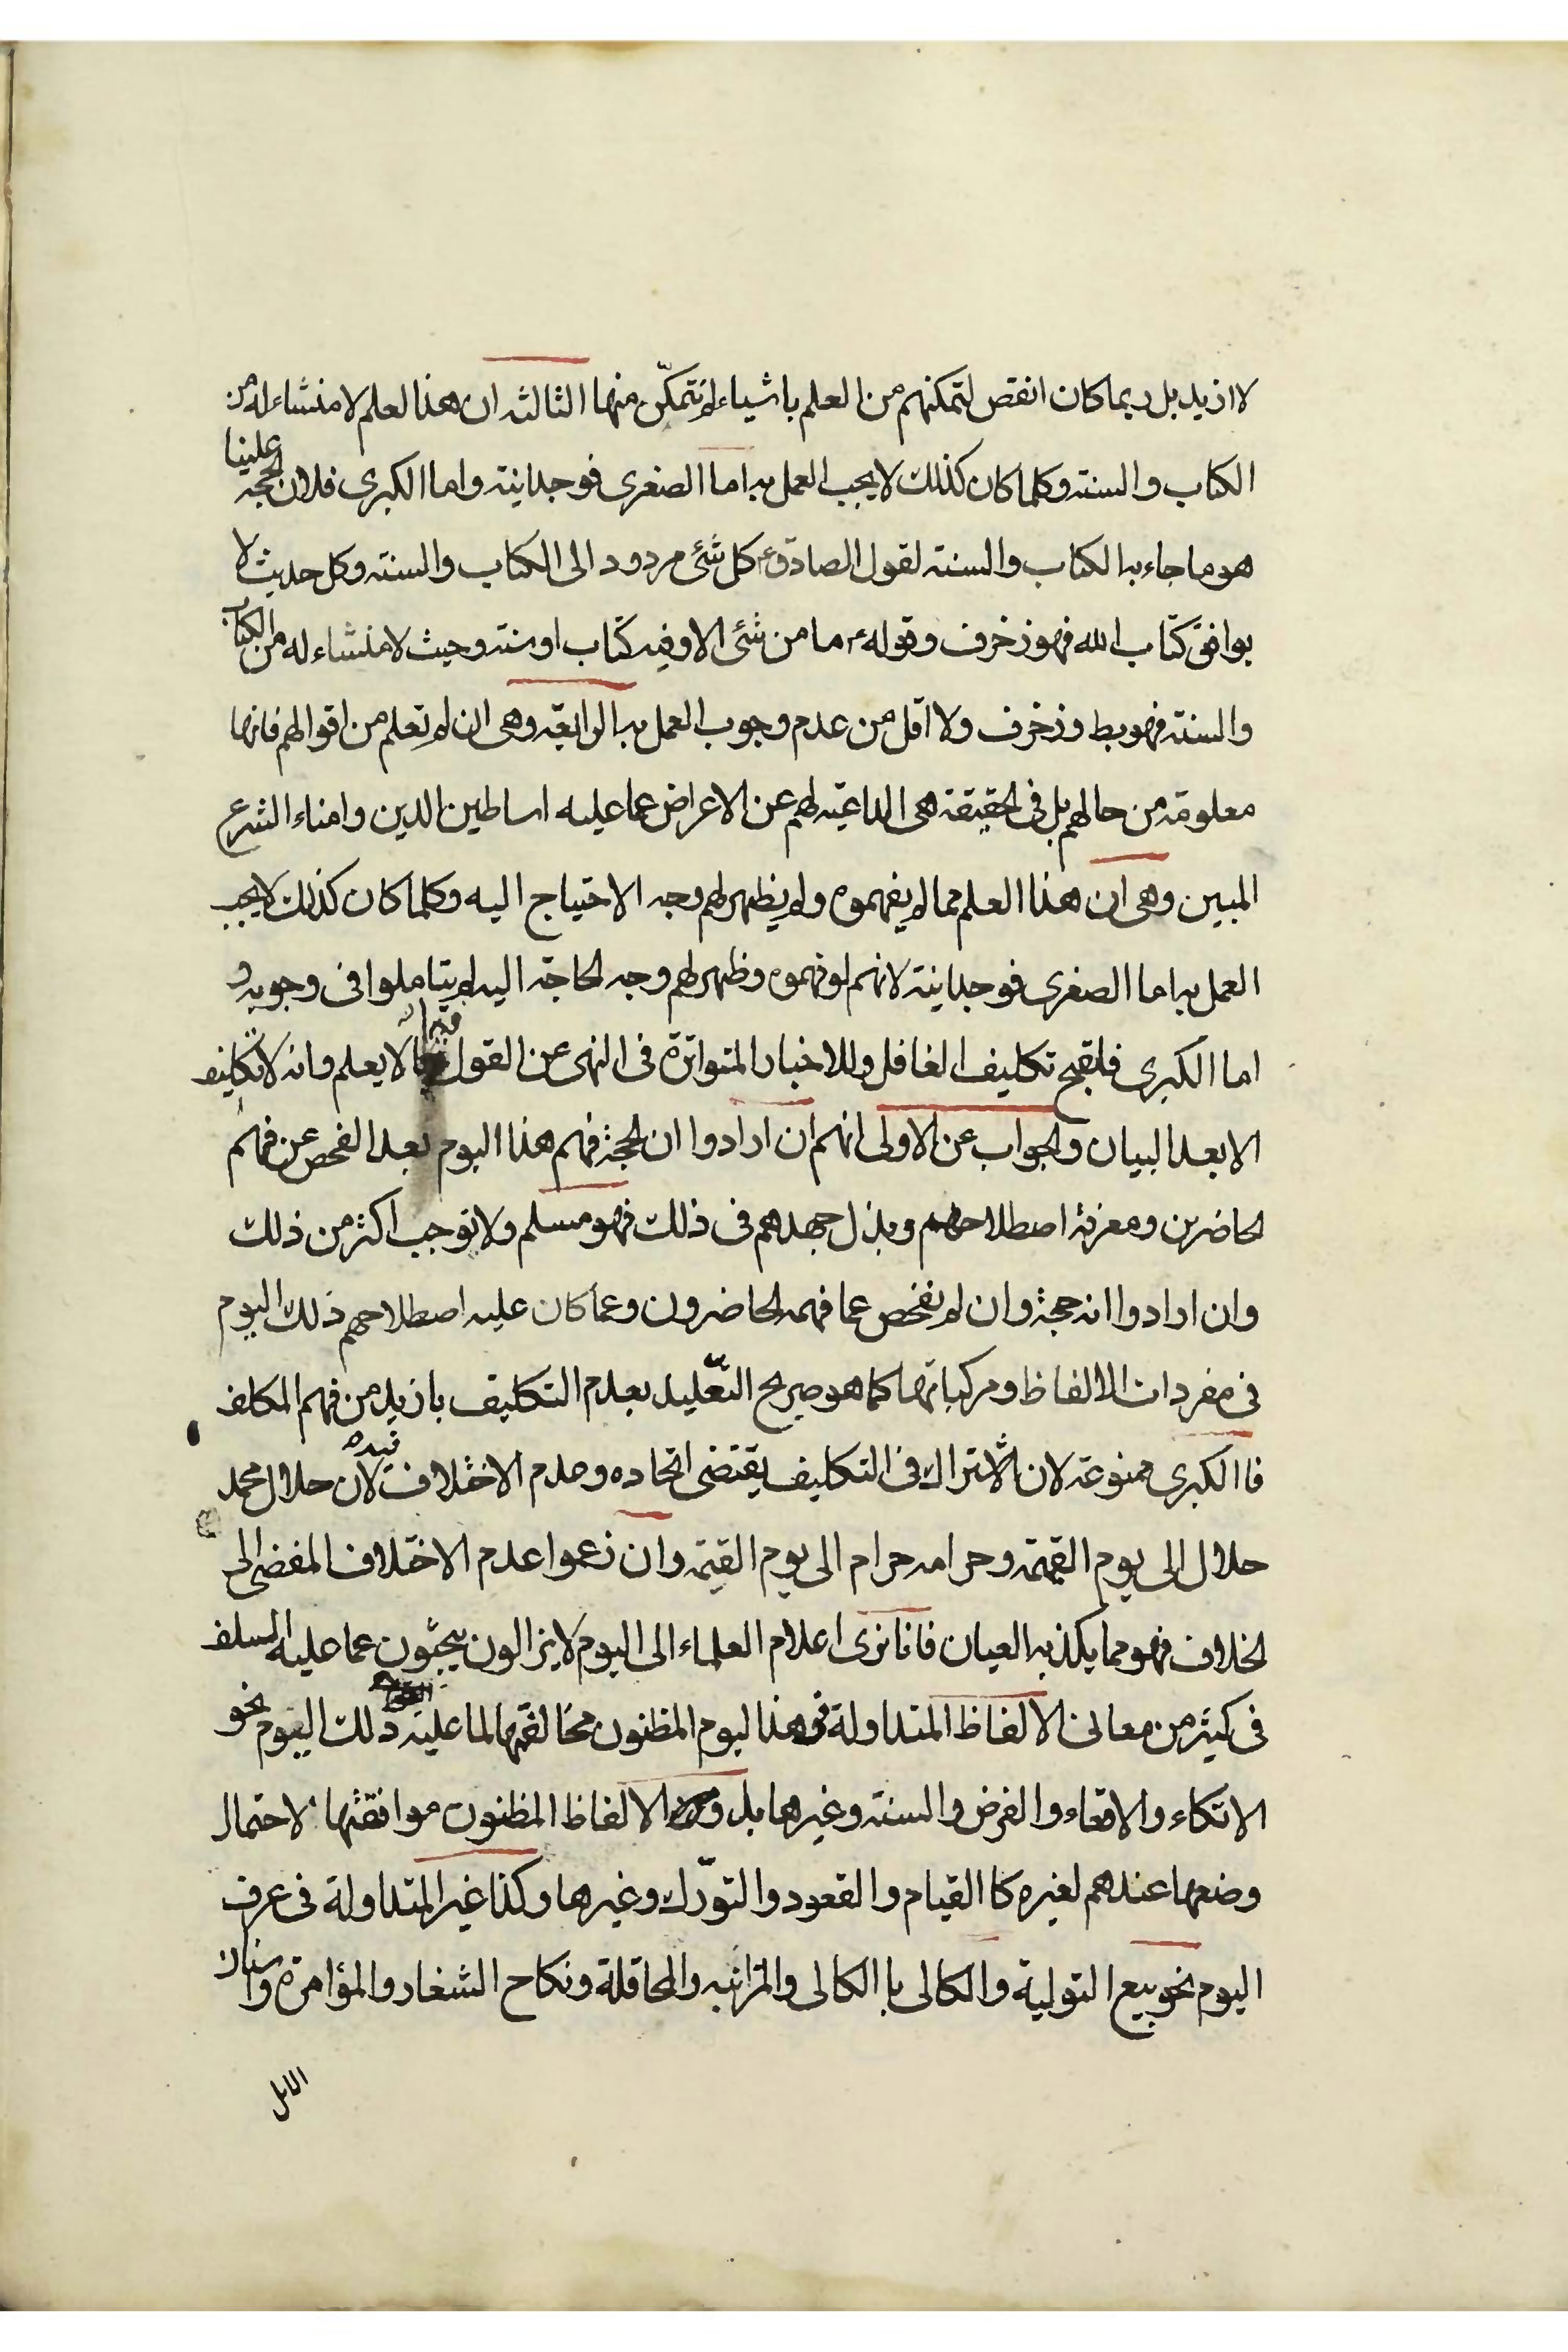 لا ازيد بل ربما كان انقص لتمكنهم من العلم باشياء لم نتمكّن منها الثالثه ان هذا لعلم لا منشاء له من
الكتاب والسنته وكلما كان كذلك لا يجب العمل به اما الصغرى فوجدانيته واما الكبرى فلان لحجة علينا
هو ما جاء به الكتاب والسنته لقول الصادق ع كل شئ مردود الى الكتاب والسنته وكل حديث لا
يوافق كتاب الله فهو زخرف وقوله ع ما من شئ الا وفيه كتاب او سنته وحيث لا منشاء له من الكتاب
والسنته فهو بط وزخرف ولا اقل من عدم وجوب العمل به الرابعة وهى ان لم تعلم من اقوالهم فانها
معلومة من حالهم بل فى لحقيقة هى الداعيته لهم عن الاعراض عما عليه اساطين الدين وامناء الشرع
المبين وهى ان هذا العلم مما لم يفهموه ولم يظهر لهم وجه الاحتياج اليه وكلما كان كذلك لا يجب
العمل به اما الصغرى فوجدانيته لانهم لو فهموه وظهر لهم وجه لحاجة اليه لم يتاملوا فى وجوبه و
اما الكبرى فلقبح تكليف الغافل وللاخبار المتواترة فى النهى عن القول فيما لا يعلم وانه لا تكليف
الا بعد البيان ولجواب عن الاولى انهم ان ارادوا ان لحجة فهم هذا اليوم بعد الفحص عن فهم
لحاضرين ومعرفة اصطلاحهم وبذل جهدهم فى ذلك فهو مسلم ولا نوجب اكثر من ذلك
وان ارادوا انه حجة وان لم نفحص عما فهمه لحاضرون وعما كان عليه اصطلاحهم ذلك اليوم
فى مفردات الالفاظ ومركباتها كما هو صريح التعّليل بعدم التكليف بازيد من فهم المكلف
فا الكبرى ممنوعة لان الاشتراك فى التكليف يقتضى اتحاده وعدم الاختلاف فيه لان حلال محمد
حلال الى يوم القيمته وحرامه حرام الى يوم القيمة وان زعموا عدم الاختلاف المفضى الى
لخلاف فهو مما يكذبه العيان فانا نرى اعلام العلماء الى اليوم لا يزالون يبحثون عما عليه السلف
فى كثير من معانى الالفاظ المتداولة فى هذا ليوم المظنون مخالفتها لما عليه ذلك اليوم نحو
الاتكاء والاقعاء والفرض والسنته وغيرها بل و الالفاظ المظنون موافقتها لاحتمال
وضعها عندهم لغيره كا القيام والقعود والتورّك وغيرها وكذا غير المتداولة فى عرف
اليوم نحو بيع التولية والكالى با الكالى والمزابنه والمحاقلة ونكاح الشغار والمؤامرة واسنان
الابل